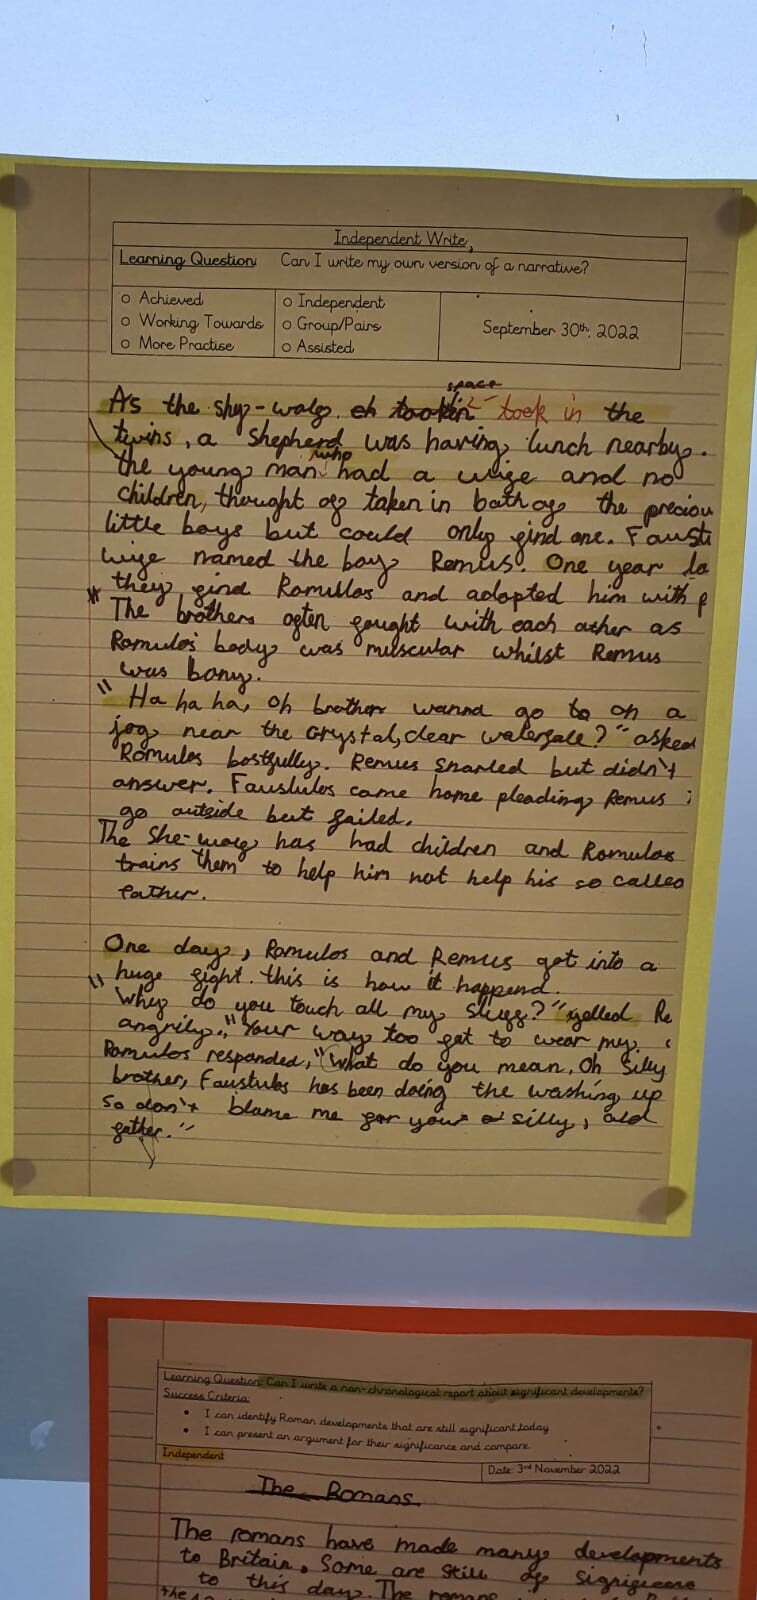 Independent Write,
Learning Question: Can I write my own version of a narrative?
o Achieved
o Working Towards
o More Practise
o Independent
o Group/Pairs
o Assisted
September 30th, 2022
space
As the shy-wolf took in the
twins, a shepherd was having lunch nearby.
who
the young man had a wife and no
children, thought of taken in both of the preciou
little boys but could only find one. Fausti
wife named the boy Remus. One year la
they find Romullos and adopted him with
* The brothers often fought with each other as
Romulos' body was muscular whilst Remus
was bony.
"Ha ha ha, oh brother wanna go to on a
jog near the crystal, clear waterfall?" asked
Romulos bostfully. Remus snarled but didn't
answer. Faustulos came home pleading Remus
go outside but failed.
The She-wolf has had children and Romulos
trains them to help him not help his so called
father.
One day, Romulos and Remus got into a
huge fight. this is how it happend.
"Why do you touch all my stuff?" yelled Re
angrily. "Your way too fat to wear my
Romulos responded, "What do you mean, Oh Silly
brother, Faustulos has been doing the washing up
so don't blame me for your silly, old
father."
Learning Question: Can I write a non-chronological report about significant developments?
Success Criteria:
• I can identify Roman developments that are still significant today
• I can present an argument for their significance and compare
Independent
Date: 3rd November 2022
The Romans
The romans have made many developments
to Britain. Some are still of
to this day. The romans